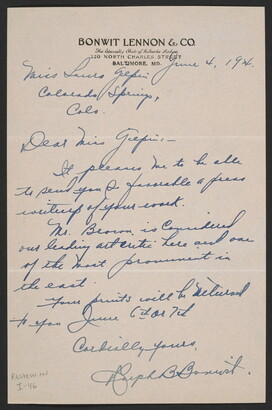 BONWIT LENNON & CO.
The Specialty Shop of Authentic Modes
220 NORTH CHARLES STREET
BALTIMORE, MD.
June 4, 194
Miss Laura Gilpin
Colorado Springs,
Colo.
Dear Miss Gilpin:-
It pleases me to be able
to send you so favorable a press
writeup of your work.
Mr. Brown is considered
our leading art critic here and one
of the most prominent in
the east.
Your prints will be returned
to you June 6th or 7th
Cordially yours,
Ralph B Bonwit